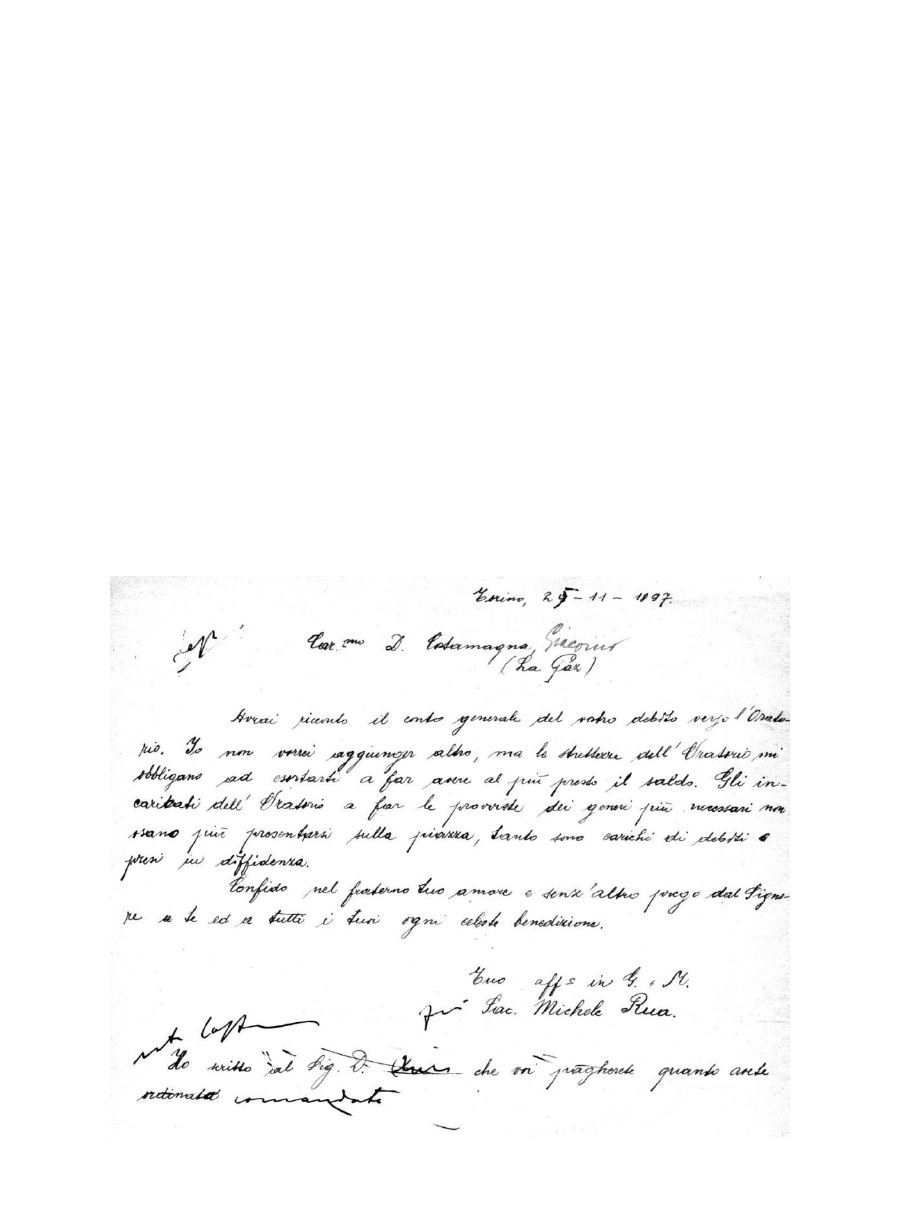 Torino, 29-11-1897.
Car.mo D. Costamagna, Giacomo
(La Paz)
Avrai ricevuto il conto generale del vostro debito verso l'Orato-
rio. Io non vorrei aggiunger altro, ma le strettezze dell'Oratorio mi
obbligano ad esortarti a far avere al più presto il saldo. Gli in-
caricati dell'Oratorio a far le provviste dei generi più necessari non
osano più presentarsi sulla piazza, tanto sono carichi di debiti e
presi in diffidenza.
Confido nel fraterno tuo amore e senz'altro prego dal Signo-
re a te ed a tutti i tuoi ogni celeste benedizione.
Tuo aff in G. e M.
Sac. Michele Rua.
Ho scritto al Sig. D. che voi pagherete quanto avete
ordinato comandato